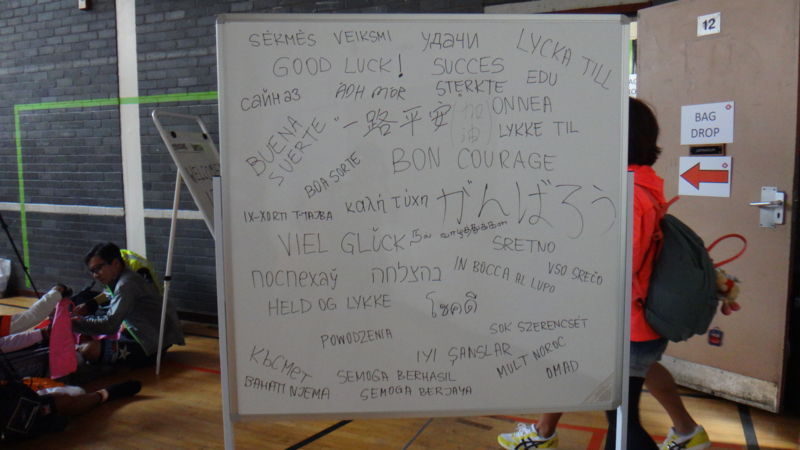 SĖKMĖS VEIKSMI удачи LYCKA TILL
GOOD LUCK! SUCCES EDU
сайн аз ÁDH MÓR STERKTE
BUENA SUERTE 一路平安 (加油) ONNEA
LYKKE TIL
BOA SORTE BON COURAGE
IX-XORTI T-TAJBA καλή τύχη がんばろう
VIEL GLÜCK SRETNO
поспехаў בהצלחה IN BOCCA AL LUPO VSO SREČO
HELD OG LYKKE โชคดี
POWODZENIA SOK SZERENCSÉT
Късмет IYI ŞANSLAR MULT NOROC
BAHATI NJEMA SEMOGA BERHASIL OMAD
SEMOGA BERJAYA
12
BAG
DROP